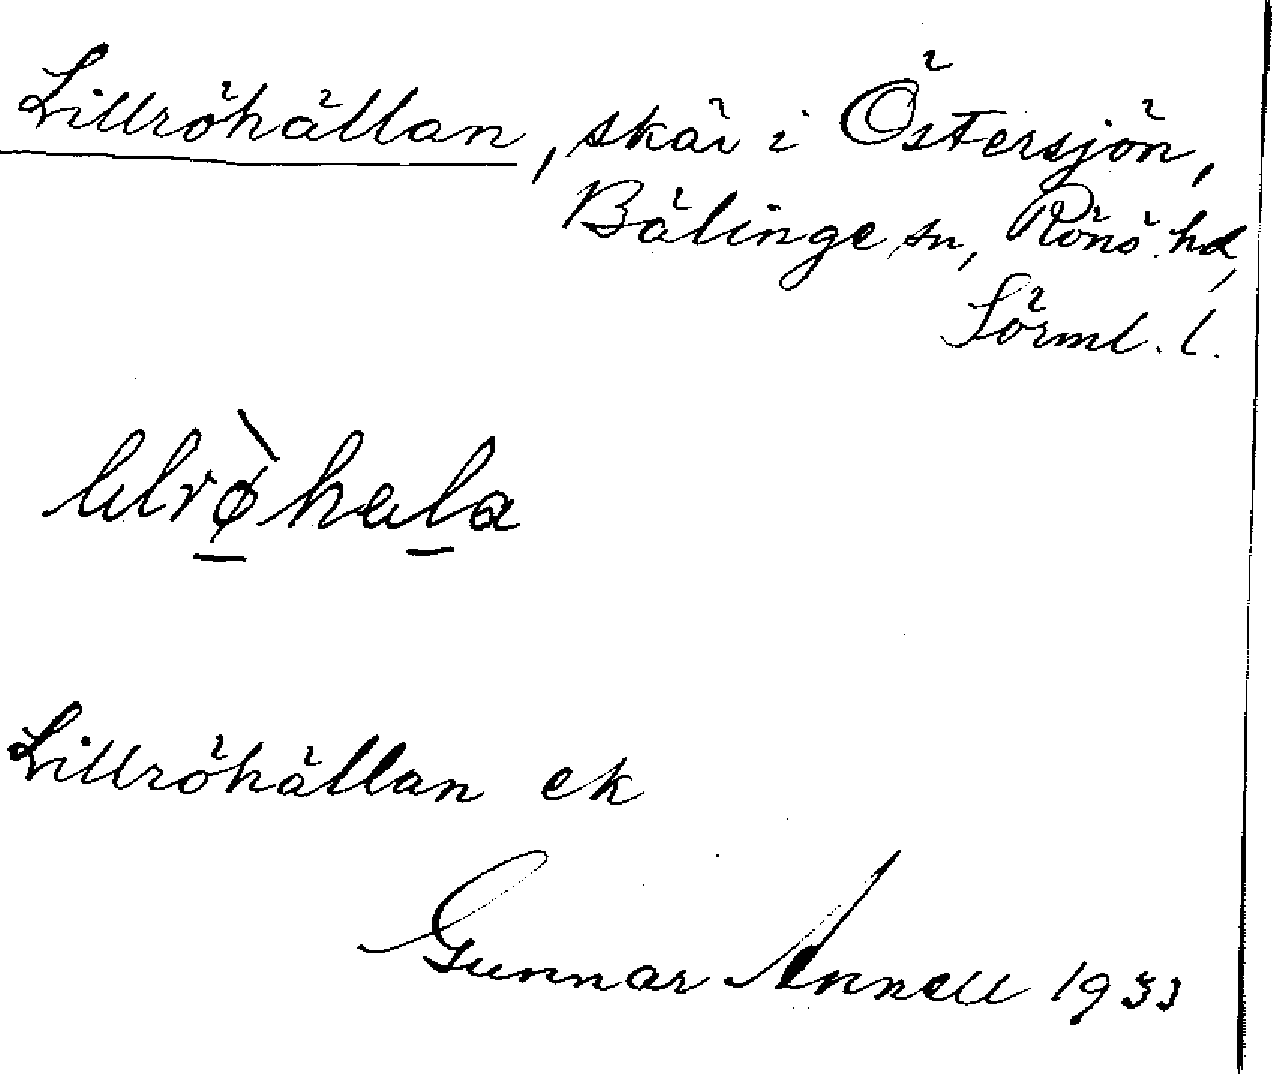 Lillröhällan, skär i Östersjön,
Bälinge sn, Rönö hd,
Sörml. l.
lilrø̀hala
Lillröhällan ek
Gunnar Annell 1933